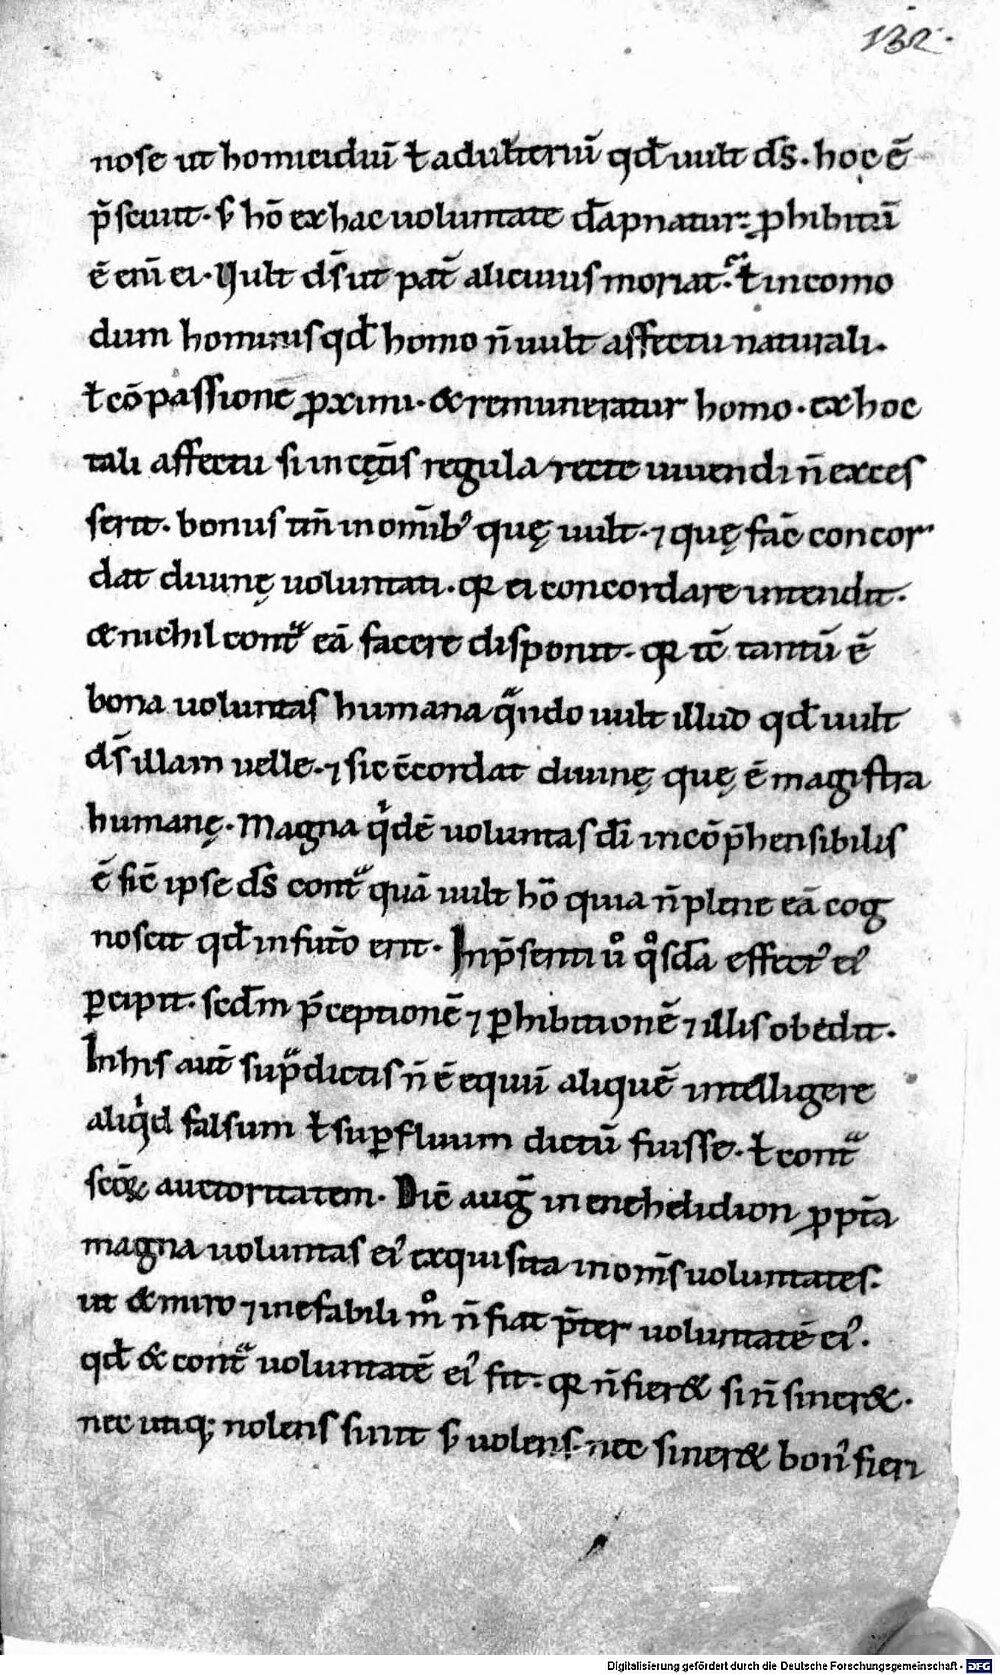 132.
nose ut homicidiū ł adulteriū qđ uult ds̄. hoc ē
p̄sciuit. s; hō ex hac uoluntate dāpnatur. ꝓhibitū
ē eni̅ ei. Uult ds̄ ut pat̄ alicuius moriat᷑. ł incomo
dum hominis qđ homo n̄ uult affectu naturali.
ł cōpassione ꝓximi. & remuneratur homo. ex hoc
tali affectu si in cęt̄is regula recte uiuendi n̄ exces
serit. bonus tn̄ in om̄ib; quę uult. ⁊ quę fac̄ concor
dat diuinę uoluntati. qꝛ ei concordare intendit.
& nichil contᵃ eā facere disponit. qꝛ tc̄ tantū ē
bona uoluntas humana qᵃndo uult illud qđ uult
ds̄ illam uelle. ⁊ sic c̄cordat diuinę quę ē magistra
humanę. Magna qⁱdē uoluntas di̅ incōp̄hensibilis
ē sic̄ ipse ds̄ contᵃ quā uult hō quia n̄ plene eā cog
noscit qđ in futo̅ erit. In p̄senti uº qºsdā effect᷒ ei᷒
ꝑcipit. scđm p̄ceptionē ⁊ ꝓhibitionē ⁊ illis obedit.
In his aut̄ supᵃdictis n̄ ē equū aliquē intelligere
aliqⁱd falsum ł suꝑfluum dictū fuisse. ł contᵃ
sc̄oꝝ auctoritatem. Dic̄ aug̅ in enchelidion ꝓpt̄a
magna uoluntas ei᷒ exquisita in om̄s uoluntates.
ut & miro ⁊ inefabili mº n̄ fiat p̄ter uoluntatē ei᷒.
qđ & contᵃ uoluntatē ei᷒ fit. qꝛ n̄ fier& si n̄ siner&.
nec utiq; nolens sinit s; uolens. nec siner& bon᷒ fieri
Digitalisierung gefördert durch die Deutsche Forschungsgemeinschaft - DFG